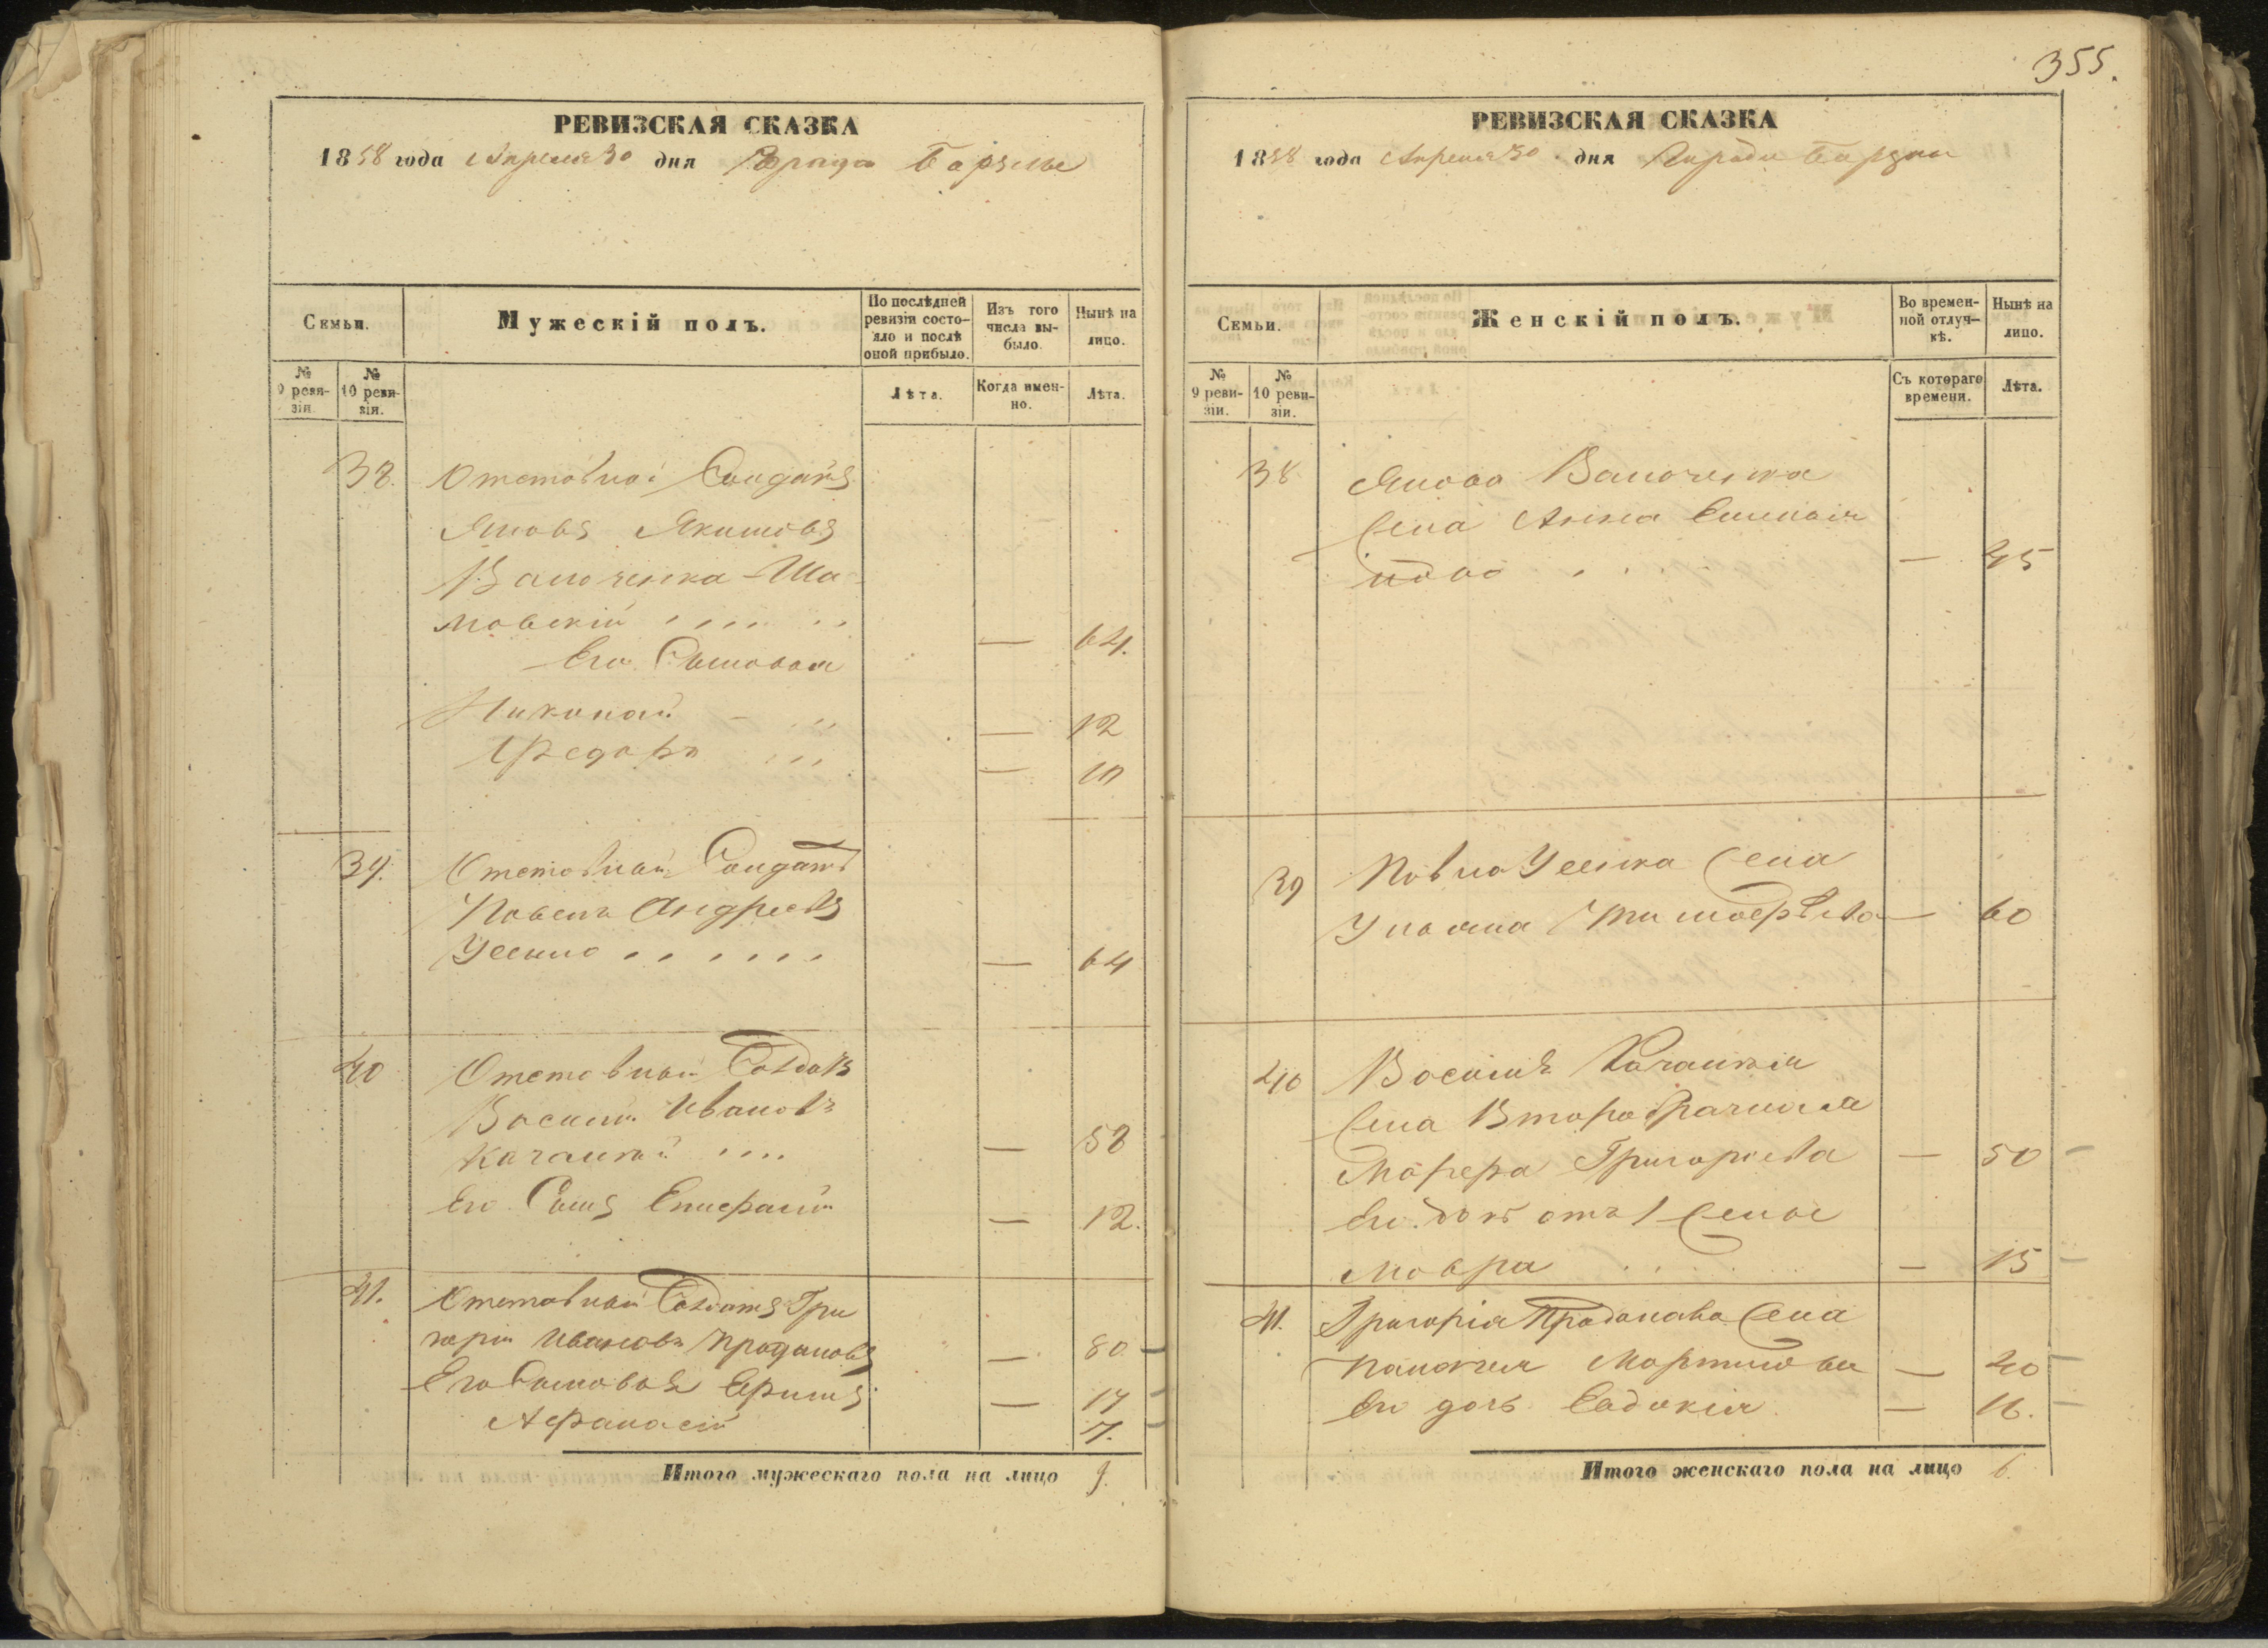 РЕВИЗСКАЯ СКАЗКА
1858 года Апреля 30 дня Города Борзны
Семьи.
Мужескій полъ.
По послѣдней ревизіи состояло и послѣ оной прибыло.
Изъ того числа выбыло.
Нынѣ на лицо.
№ 9 ревизіи.
№ 10 ревизіи.
Лѣта.
Когда именно.
Лѣта.
38. Отставной Солдатъ
Яковъ Якимовъ
мовскій
— 64.
Его Сыновья
Николай — 12
Федоръ — 10
39. Отставной Солдатъ
Павелъ Андреевъ
— 64
40 Отставной Солдатъ
Василій Ивановъ
— 58
Его Сынъ Епифаній — 12.
41. Отставной Солдатъ Гри
горій Ивановъ
— 80
Его Сыновья — 17
Афанасій 7.
Итого мужескаго пола на лицо 9.
355.
РЕВИЗСКАЯ СКАЗКА
1858 года Апреля 30 дня Города Борзны
Семьи.
Женскій полъ.
Во временной отлучкѣ.
Нынѣ на лицо.
№ 9 ревизіи.
№ 10 ревизіи.
Съ котораго времени.
Лѣта.
38 Якова
Жена Анна
— 45
39 Павла Жена
Ульяна Тимофѣева — 60
40 Василія
Жена Второбрачная
Григорьева — 50
Его дочь отъ 1 Жены
Мавра — 15
41. Григорія Жена
Мартинова — 40
Его дочь Евдокія — 16.
Итого женскаго пола на лицо 6.